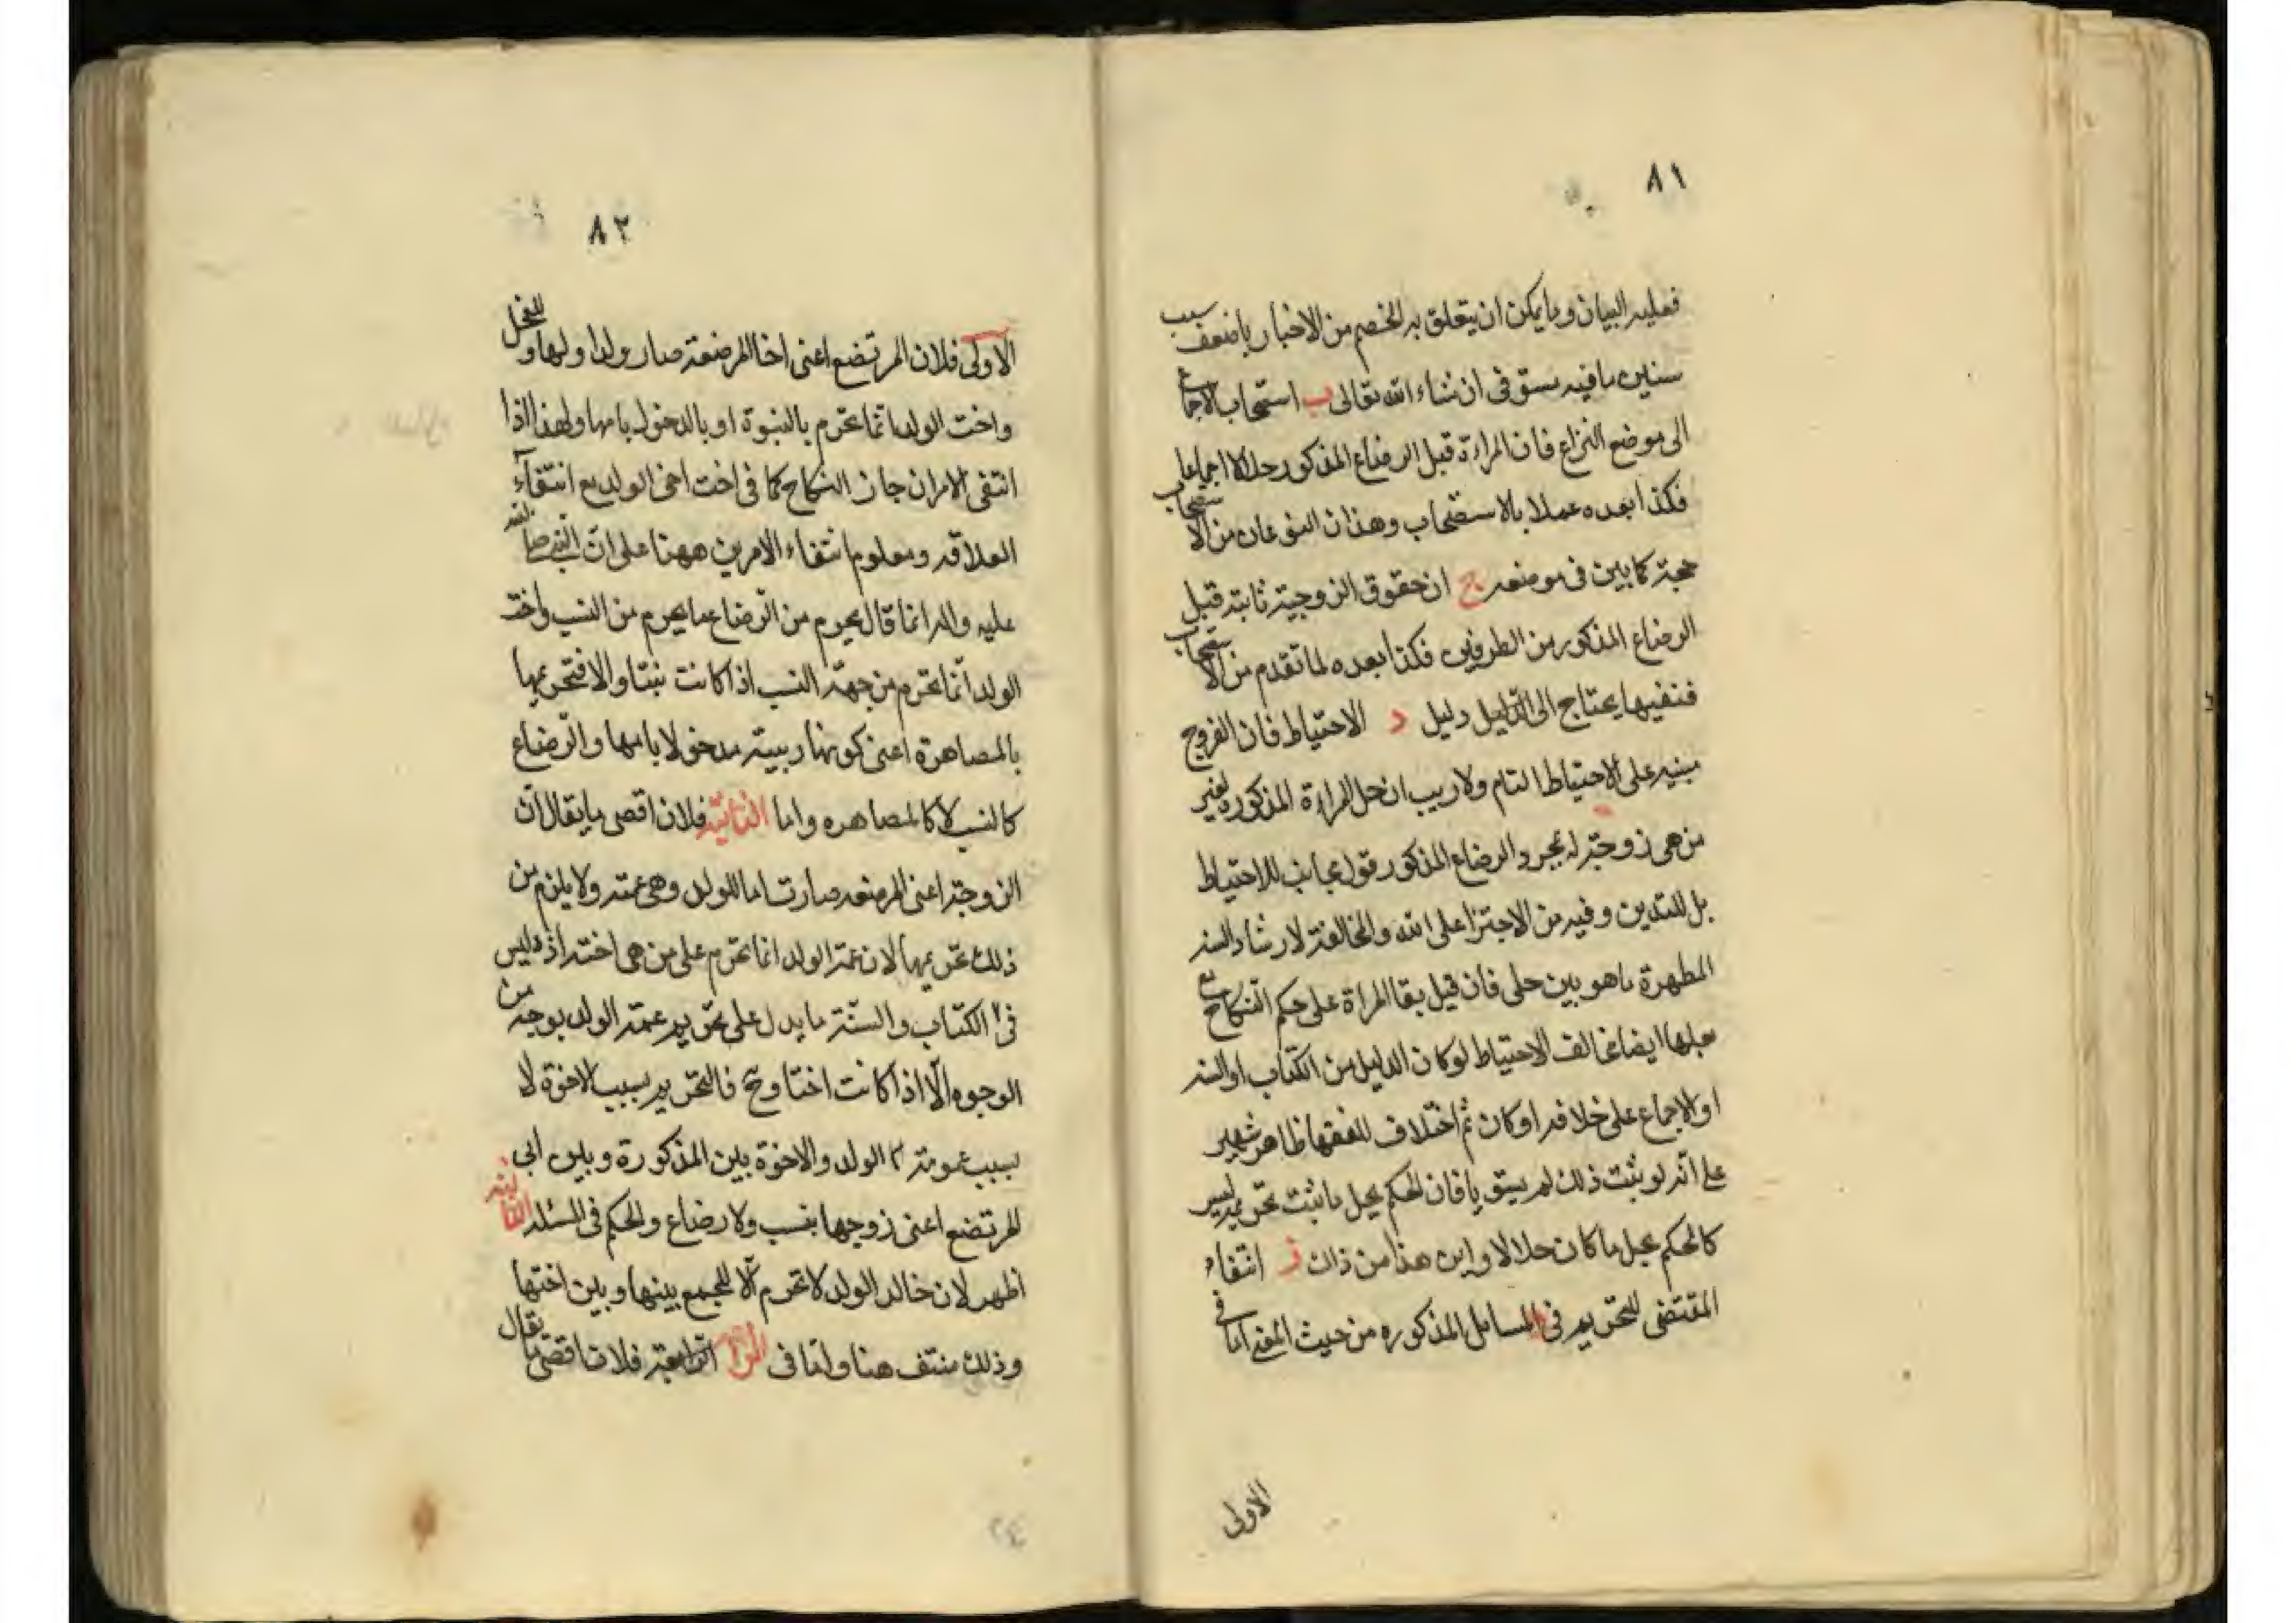 ٨١
فعليه البيان وما يمكن ان يتعلق به الخصم من الاخبار باضعف سبب
سنبين ما فيه مستوفى ان شاء الله تعالى ب استصحاب الاجماع
الى موضع النزاع فان المراة قبل الرضاع المذكور حلالا اجماعا
فكذا بعده عملا بالاستصحاب وهذان النوعان من الاستصحاب
حجة كما بين فى موضعه ج ان حقوق الزوجية ثابته قبل
الرضاع المذكور من الطرفين فكذا بعده لما تقدم من الاستصحاب
فنفيها يحتاج الى الدليل دليل د الاحتياط فان الفروج
مبنيه على الاحتياط التام ولا ريب ان حل المراءة المذكوره لغير
من هى زوجة له بمجرد الرضاع المذكور قول مجانب للاحتياط
بل للتدين وفيه من الاجترا على الله والمخالفة لارشاد السنه
المطهرة ما هو بين جلى فان قيل بقا المراة على حكم النكاح مع
بعلها ايضا مخالف الاحتياط لو كان الدليل من الكتاب او السنه
او الاجماع على خلافه او كان ثم اختلاف للفقها ظاهر شهير
على انه لو ثبت ذلك لم يستق يا فان الحكم بحل ما ثبت تحريمه ليس
كالحكم بحل ما كان حلالا واين هذا من ذاك انتفاء
المقتضى للتحريم فى المسايل المذكوره من حيث المعنى اما فى
الاولى
٨٢
الاولى فلان المرتضع اعنى اخا المرضعة صار ولدا ولها وللفحل
واخت الولد انما تحرم بالبنوة او بالدخول بامها ولهذا اذا
انتفى الامران جاز النكاح كما فى اخت اخى الولد مع انتقاء
العلاقه ومعلوم انتفاء الامرين ههنا على ان النبى صلى الله
عليه واله انما قال يحرم من الرضاع ما يحرم من النسب واخت
الولد انما تحرم من جهة النسب اذا كانت بنتا والا فتحريمها
بالمصاهرة اعنى كونها ربيبة مدخولا بامها والرضاع
كالنسب لا كالمصاهره واما الثانية فلان اقصى ما يقال ان
الزوجة اعنى المرضعه صارت اما للولد وهى عمته ولا يلزم من
ذلك تحريمها لان عمة الولد انما تحرم على من هى اخته اذ ليس
فى الكتاب والسنة ما يدل على تحريم عمة الولد بوجه من
الوجوه الا اذا كانت اختا وح فالتحريم بسبب الاخوة لا
بسبب عمومة الولد والاخوة بين المذكورة وبين ابى
المرتضع اعنى زوجها بنسب ولا رضاع والحكم فى المسئله الثالثه
اظهر لان خالة الولد لا تحرم الا للجمع بينها وبين اختها
وذلك منتف هنا واما فى الرابعة فلان اقصى ما يقال